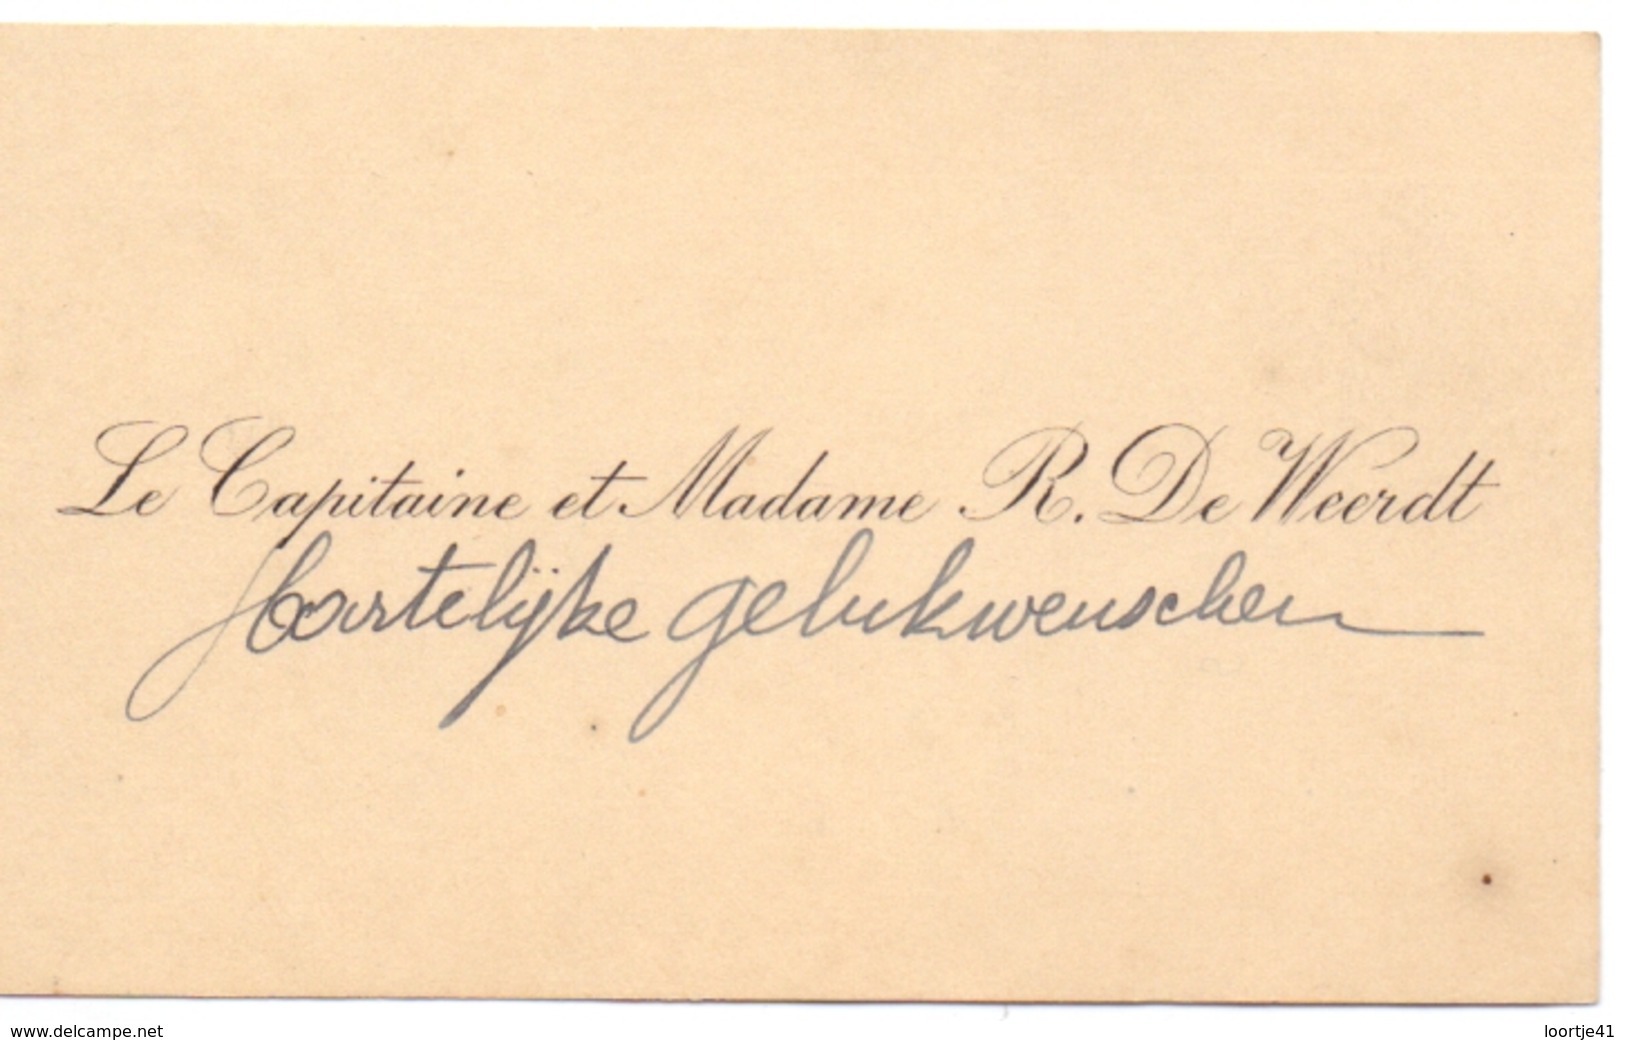 Le Capitaine et Madame R. De Weerdt
Hartelijke gelukwenschen
www.delcampe.net
loortje41